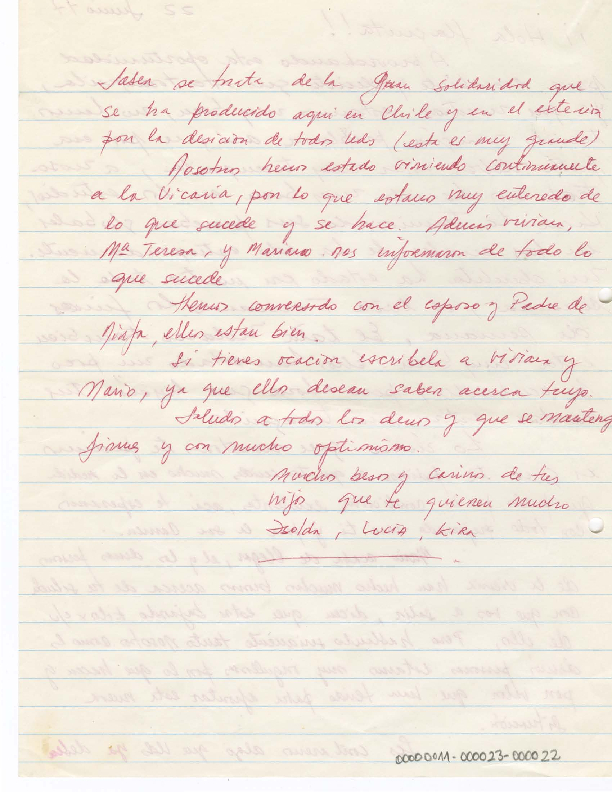 saber se trata de la Gran solidaridad que
se ha producido aqui en Chile y en el exterior
por la desición de todos Uds (esta es muy grande)
Nosotros hemos estado viniendo continuamente
a la Vicaria, por lo que estamos muy enterado de
lo que sucede y se hace. Además viviana,
Mª Teresa, y Mariano. nos informaron de todo lo
que sucede
Hemos conversado con el esposo y Padre de
ellos estan bien.
Si tienes ocacion escribela a Viviana y
Mario, ya que ellos desean saber acerca tuyo.
Saludos a todos los demos y que se manteng
firmes y con mucho optimismo.
Muchos besos y cariños de tus
hijos que te quieren mucho
Isolda, Lucia, Kira
00000011-000023-000022